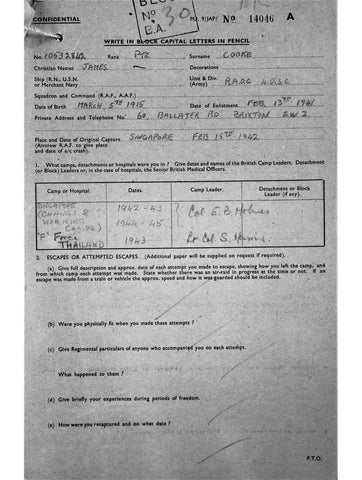 BLOCK
No 30
E.A.
CONFIDENTIAL
M.I. 9/JAP/ No 14046 A
WRITE IN BLOCK CAPITAL LETTERS IN PENCIL
No. 10532842 Rank PTE. Surname COOKE
Christian Names JAMES — Decorations —
Ship (R.N., U.S.N. or Merchant Navy Unit & Div. (Army) R.A.O.C.
Squadron and Command (R.A.F., A.A.F.)
Date of Birth MARCH, 5TH 1915 Date of Enlistment FEB 13TH 1941
Private Address and Telephone No. 60, BALLATER RD BRIXTON S.W.2
Place and Date of Original Capture SINGAPORE FEB 15TH 1942
(Aircrew R.A.F. to give place
and date of a/c crash).
1. What camps, detachments or hospitals were you in? Give dates and names of the British Camp Leaders. Detachment
(or Block) Leaders or, in the case of hospitals, the Senior British Medical Officers.
Camp or Hospital. Dates. Camp Leader. Detachment or Block Leader (if any).
SINGAPORE 1942-43
(CHANGI & Col E.B. Holmes.
WORKING 1944-45
CAMPS)
"F" Force 1943 Lt Col S. Harris.
THAILAND
2. ESCAPES OR ATTEMPTED ESCAPES. (Additional paper will be supplied on request if required).
(a) Give full description and approx. date of each attempt you made to escape, showing how you left the camp, and
from which camp each attempt was made. State whether there was an air-raid in progress at the time or not. If an
escape was made from a train or vehicle the approx. speed and how it was guarded should be included.
(b) Were you physically fit when you made these attempts ?
(c) Give Regimental particulars of anyone who accompanied you on each attempt.
What happened to them ?
(d) Give briefly your experiences during periods of freedom.
(e) How were you recaptured and on what date ?
P.T.O.